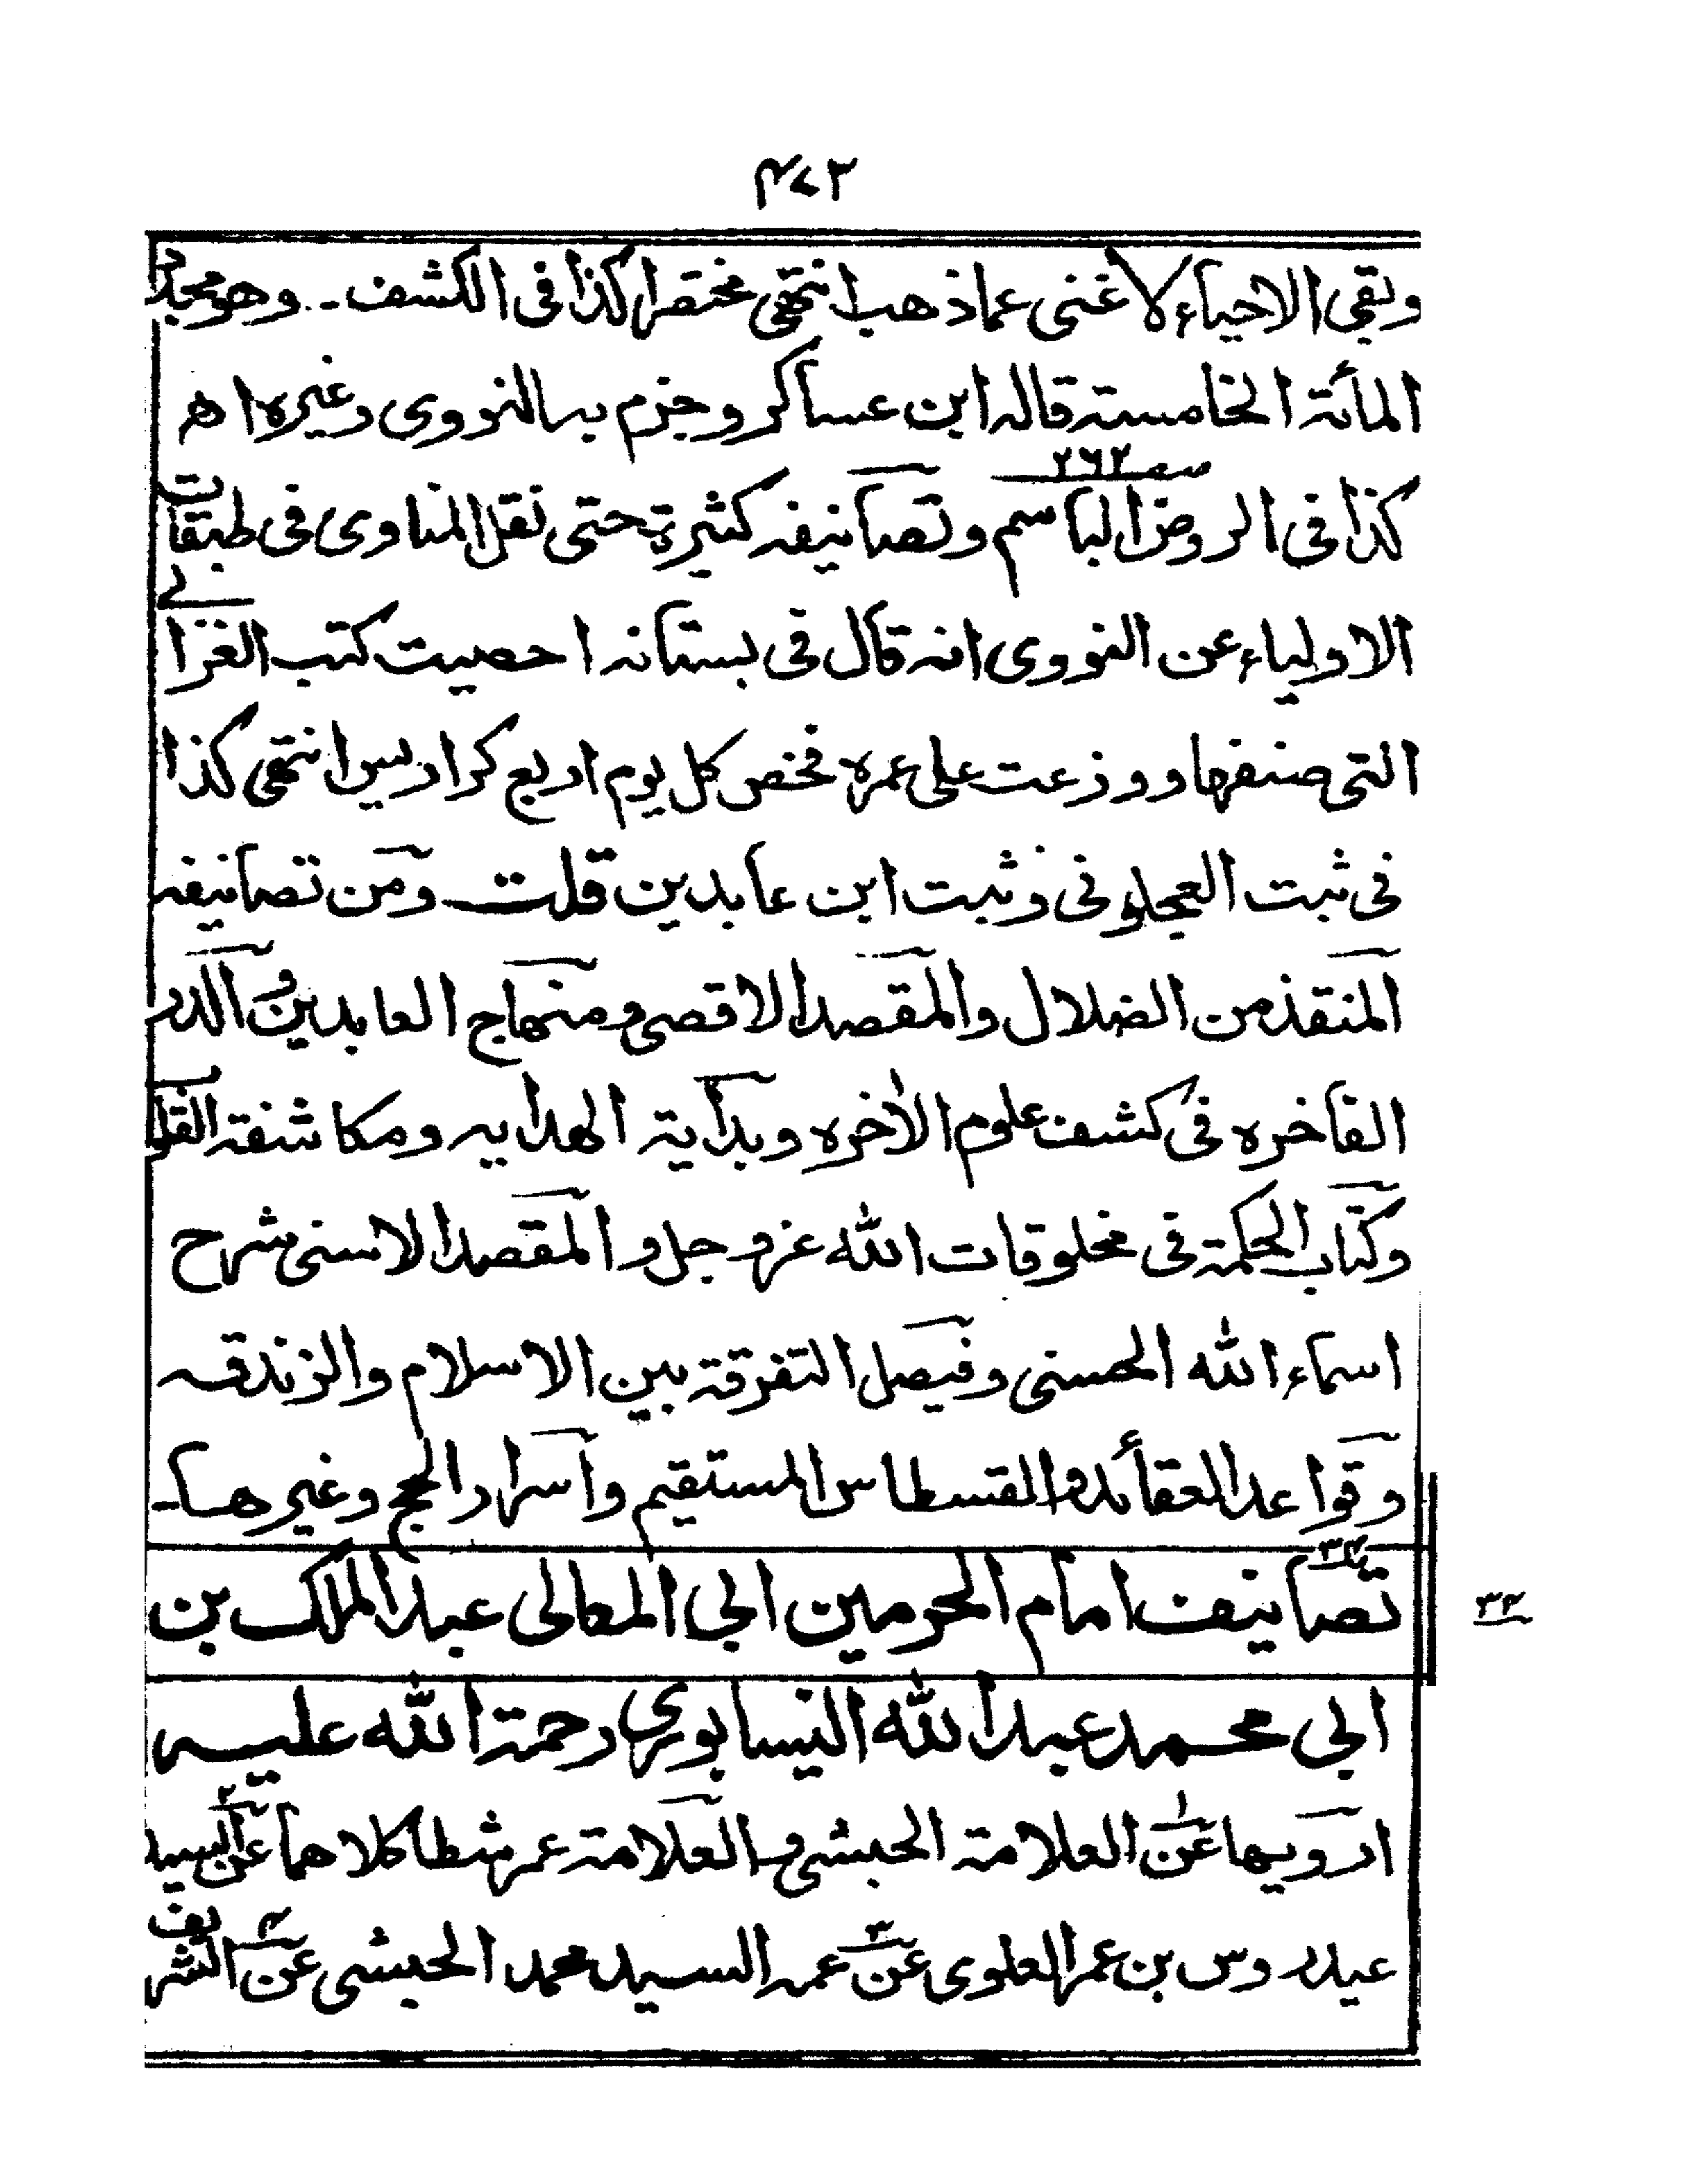 ٢٤٣
وبقى الاحياء لاغنى عماذهب انتهى مختصرا كذا فى الكشف۔ وهو مجدد
المأئة الخامسة قاله ابن عساكر وجزم به النووى وغيره اھ
صـ ٢٦٢
كذا فى الروض الباسم وتصانيفه كثيرة حتى نقل المناوى فى طبقات
الاولياء عن النووى انه قال فى بستانه احصيت كتب الغزالى
التى صنفها ووزعت على عمره فخص كل يوم اربع كراريس انتهى كذا
فى ثبت العجلونى وثبت ابن عابدين قلت ومن تصانيفه
المنقذ من الضلال والمقصد الاقصى ومنهاج العابدين و الدر
الفاخره فى كشف علوم الأخره وبداية الهدايه ومكاشفة القلو
وكتاب الحكمة فى مخلوقات الله عز وجل و المقصد الاسنى شرح
اسماء الله الحسنى وفيصل التفرقة بين الاسلام والزندقه
وقواعد العقائد والقسطاس المستقيم و اسرار الحج وغيرها۔
تصانيف امام الحرمين ابي المعالى عبد الملك بن
ابي محمد عبد الله النيسابوري رحمة الله عليه
ارويها عن العلامة الحبشى و العلامة عمر شطا كلاهما عن السيد
عيدروس بن عمر العلوى عن عمه السيد محمد الحبشى عن الشريف